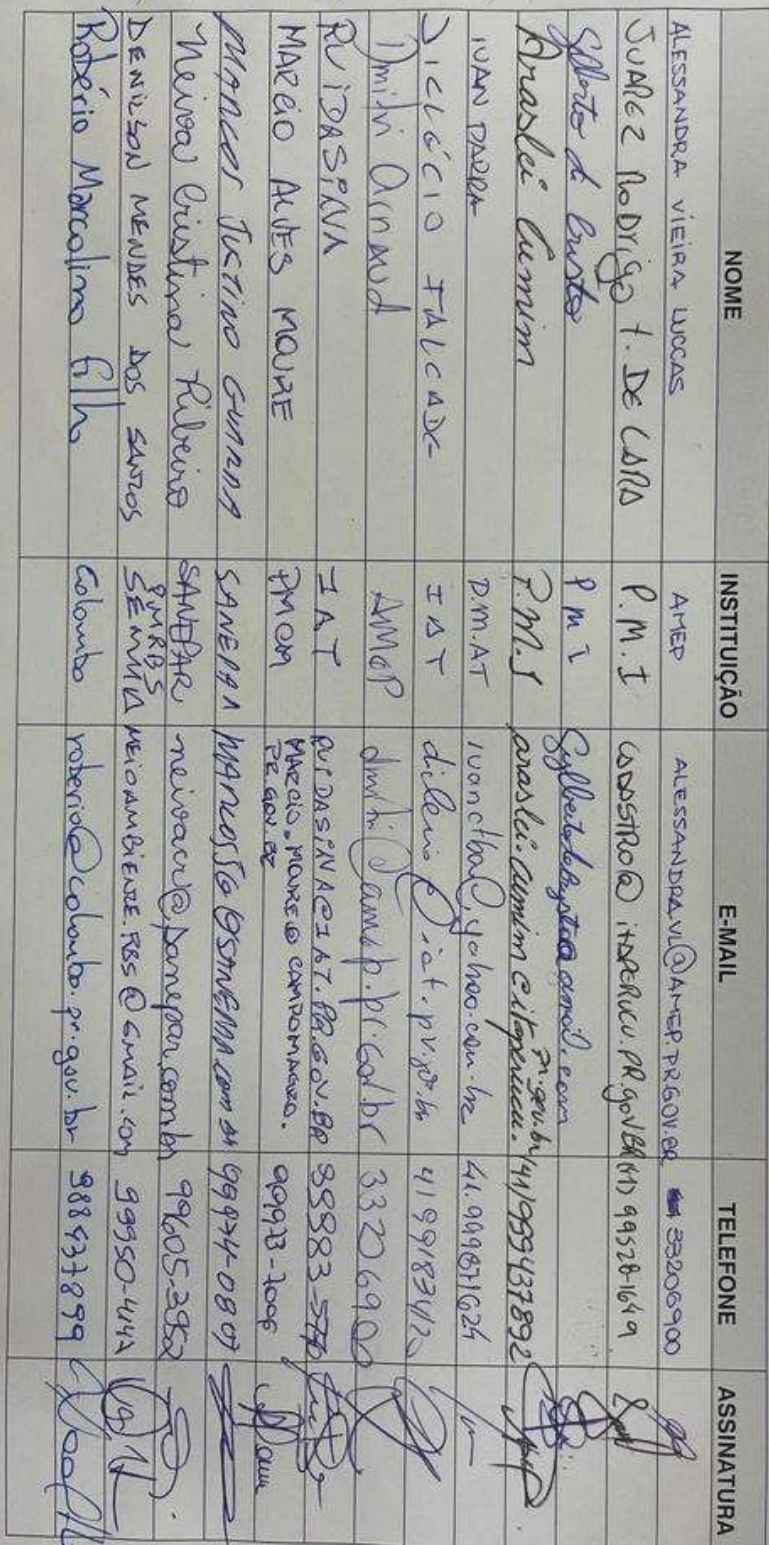 NOME INSTITUIÇÃO E-MAIL TELEFONE ASSINATURA
ALESSANDRA VIEIRA LUCCAS AMEP ALESSANDRA.VL@AMEP.PR.GOV.BR 33206900
JUAREZ RODRIGO t. DE LARA P.M.I CADASTRO@ITAPERUCU.PR.gov.BR (41) 99528-1649
P M I
Araslei Cumim P.M.I araslei.cumim@itaperucu.pr.gov.br (41) 999437892
IVAN DARRA D.M.AT ivanctba@yahoo.com.br 41.999871624
DICLÉCIO FALCADE IAT 41 99183412
Dmitri Arnaud AMEP dmitri@amep.pr.gov.br 33206900
RUI DASILVA IAT RUIDASILVA@IAT.PR.GOV.BR
MARCIO ALVES MOURE PMCM MARCIO.MOURE@CAMPOMAGRO.PR.GOV.BR
MARCOS JUSTINO GUARDA SANEPAR 99974-0807
Neiva Cristina Ribeiro SANEPAR neivacr@sanepar.com.br 99605-3952
DENILSON MENDES DOS SANTOS PMRBS SEMMA MEIOAMBIENTE.RBS@GMAIL.COM 99950-4147
Robério Marcolino Filho Colombo roberio@colombo.pr.gov.br 988437899